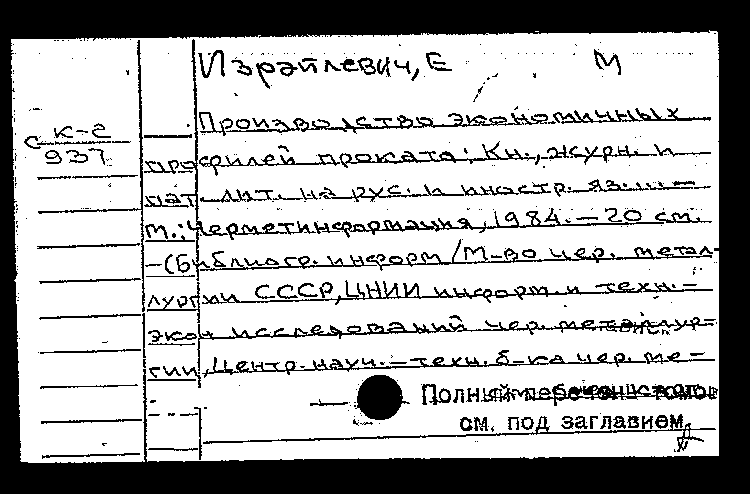 Израйлевич, Е М
С К-2
937
Производство экономичных
профилей проката: Кн., журн. и
пат. лит. на рус. и иностр. яз.... —
М.: Черметинформация, 1984. — 20 см.
— (Библиогр. информ / М-во чер. метал-
лургии СССР, ЦНИИ информ. и техн. —
экон исследований чер. металлур-
гии, Центр. науч. — техн. б-ка чер. ме-
Полный перечень томов
см. под заглавием